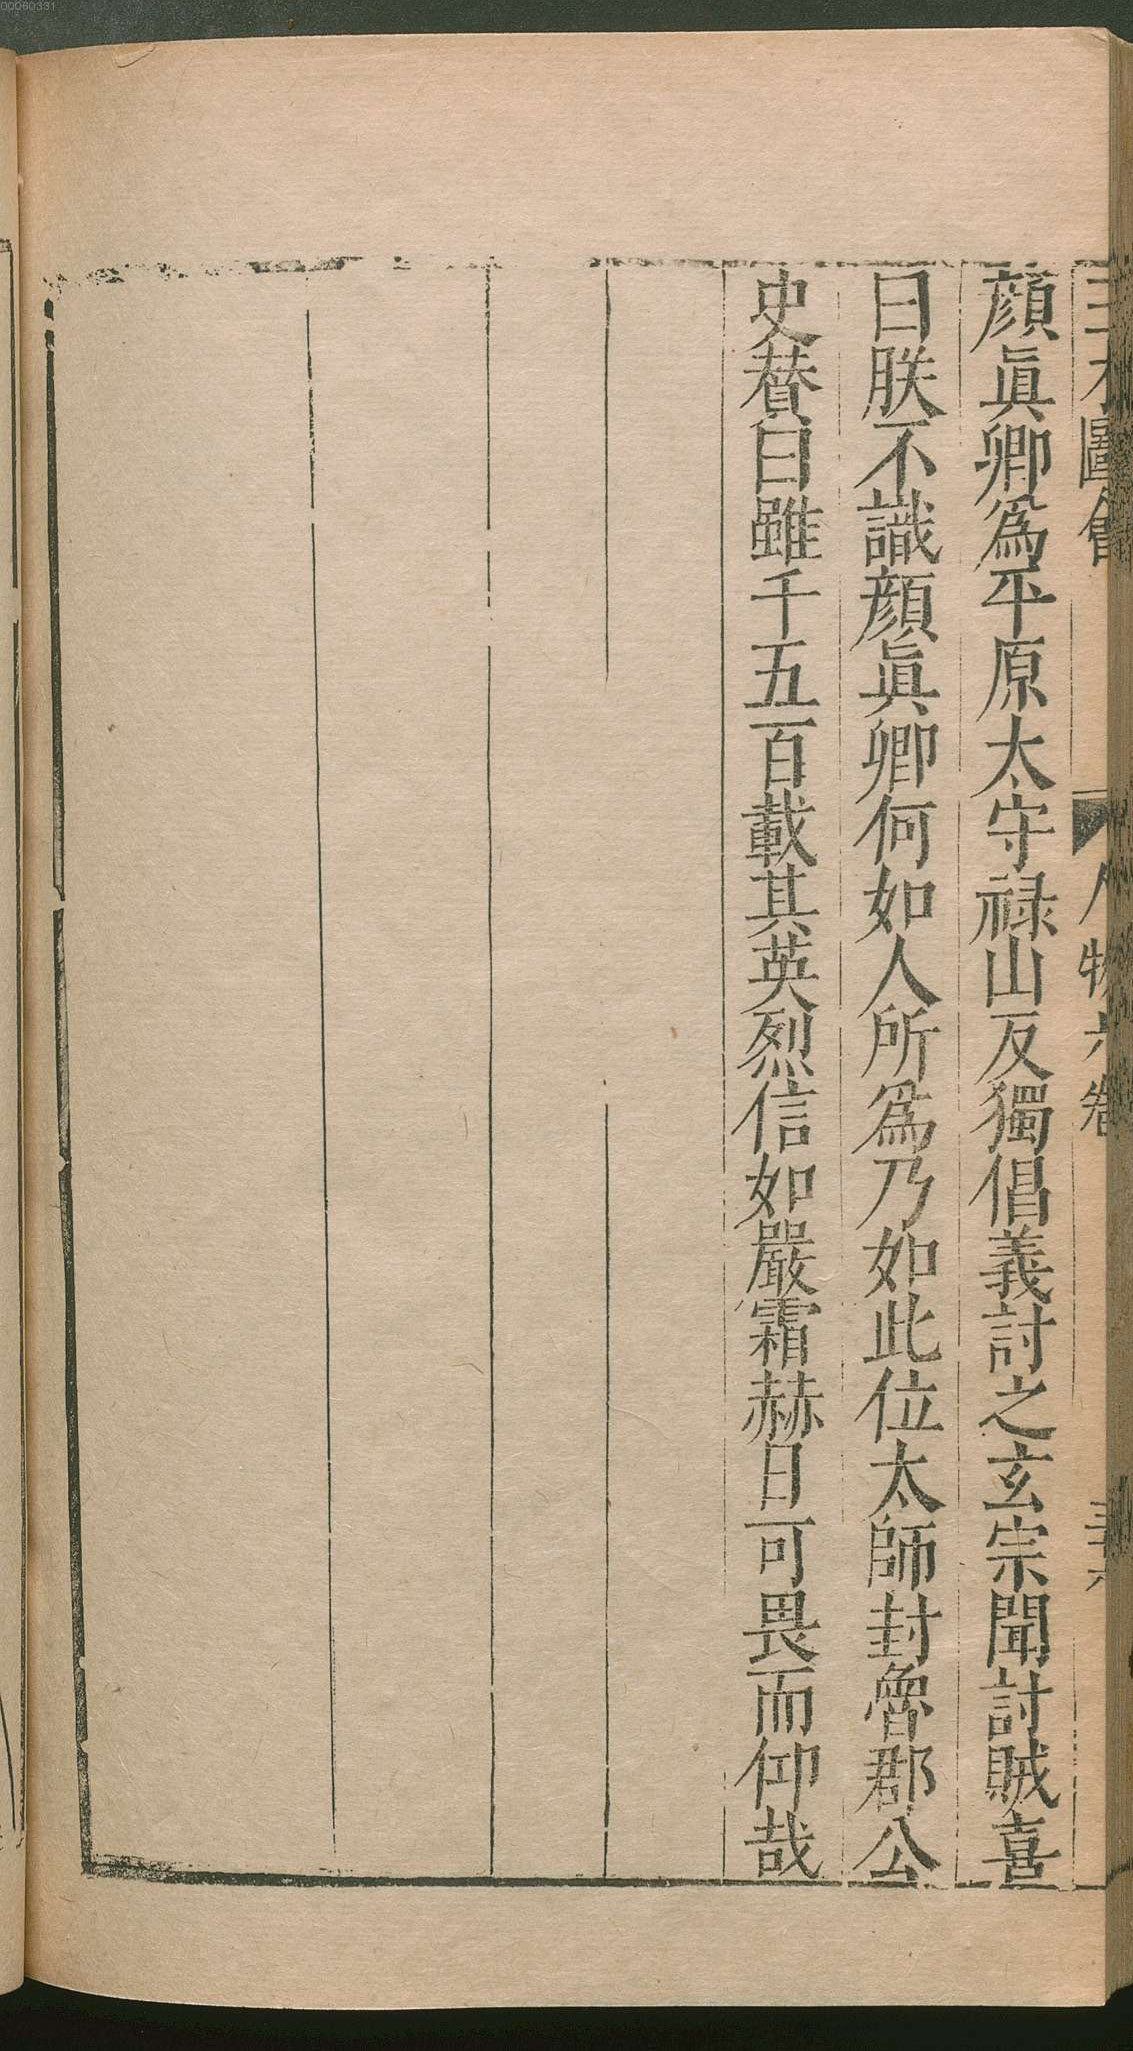 00060331
三才圖會 人物六卷 三十六
顔眞卿爲平原太守禄山反獨倡義討之玄宗聞討賊喜
曰朕不識顔眞卿何如人所爲乃如此位太師封魯郡公
史賛曰雖千五百載其英烈信如嚴霜赫日可畏而仰哉